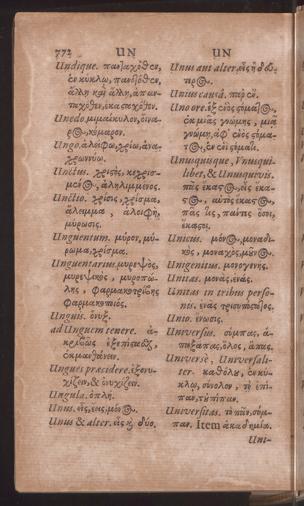 772 UN UN
Undique. πανταχόθεν,
ἐν κύκλῳ, παντόθεν,
ἄλλη καὶ ἄλλη, ἁπαν-
ταχόθεν, ἑκασταχόθεν.
Unedo μιμαίκυλον,
κόμαρον.
Ungo. ἀλείφω, χρίω,
Unctus. χριστὸς, κεχρισ-
μένος, ἀληλιμμένος.
Unctio. χρίσις, χρίσμα,
ἄλειμμα, ἀλοιφὴ,
μύρωσις.
Unguentum. μύρον, μύ-
ρωμα, χρίσμα.
Unguentarius. μυρεψὸς,
μυρεψικὸς, μυροπώ-
λης, φαρμακοτρίβης
Unguis. ὄνυξ.
ad Unguem tenere. ἀ-
κριβῶς ἐξεπίστασθαι,
ἐκμανθάνειν.
Ungues præcidere. ἐξονυ-
χίζειν, & ὀνυχίζειν.
Ungula. ὁπλή.
Unus. εἷς, μόνος.
Unus & alter. εἷς καὶ δύο.
Unus aut alter. εἷς ἢ δεύ-
τερος.
Unius causâ. περὶ ἑνὸς.
Uno ore. ἐξ ἑνὸς στόματος,
ἐκ μιᾶς γνώμης, μιᾷ
γνώμῃ, ἀφ᾽ ἑνὸς στόμα-
τος, ἐν ἑνὶ στόματι.
Unusquisque, Unusqui-
libet, & Unusquivis.
πᾶς ἕκαστος, εἷς ἕκα-
στος, αὐτὸς ἕκαστος,
πᾶς τις, πάντες ὅσοι,
ἕκαστοι.
Unicus. μόνος, μοναδι-
κὸς, μοναχὸς,
Unigenitus. μονογενής.
Unitas. μονὰς, ἑνάς.
Unitas in tribus perso-
nis. ἑνὰς τρισυπόστατος.
Unio. ἕνωσις.
Universus. σύμπας, ἁ-
παξάπας, ὅλος, ἅπας.
Universè, Universali-
ter. καθόλου, ἐν κύ-
κλῳ, σύνολον, τὸ ἐπί-
παν,
Universitas. τὸ πᾶν, σύμ-
παν. Item ἀκαδημία.
Uni-